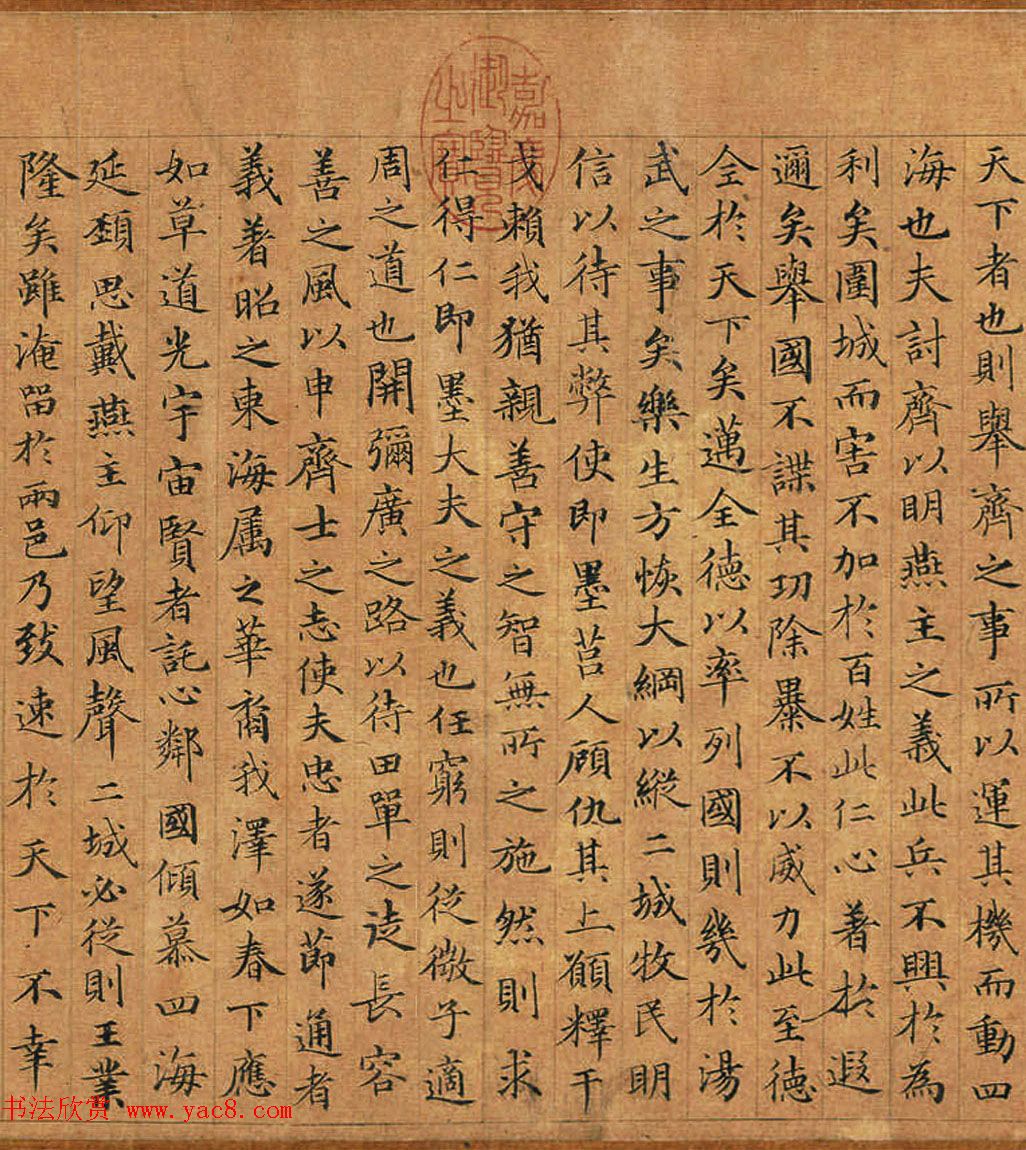 嘉慶
御覽
之寶
天下者也則舉齊之事所以運其機而動四
海也夫討齊以明燕主之義此兵不興於為
利矣圍城而害不加於百姓此仁心著於遐
邇矣舉國不謀其功除暴不以威力此至德
全於天下矣邁全德以率列國則幾於湯
武之事矣樂生方恢大綱以縱二城牧民明
信以待其弊使即墨莒人顧仇其上願釋干
戈賴我猶親善守之智無所之施然則求
仁得仁即墨大夫之義也任窮則從微子適
周之道也開彌廣之路以待田單之徒長容
善之風以申齊士之志使夫忠者遂節通者
義著昭之東海属之華裔我澤如春下應
如草道光宇宙賢者託心鄰國傾慕四海
延頸思戴燕主仰望風聲二城必從則王業
隆矣雖淹留於兩邑乃致速於天下不幸
书法欣赏 www.yac8.com